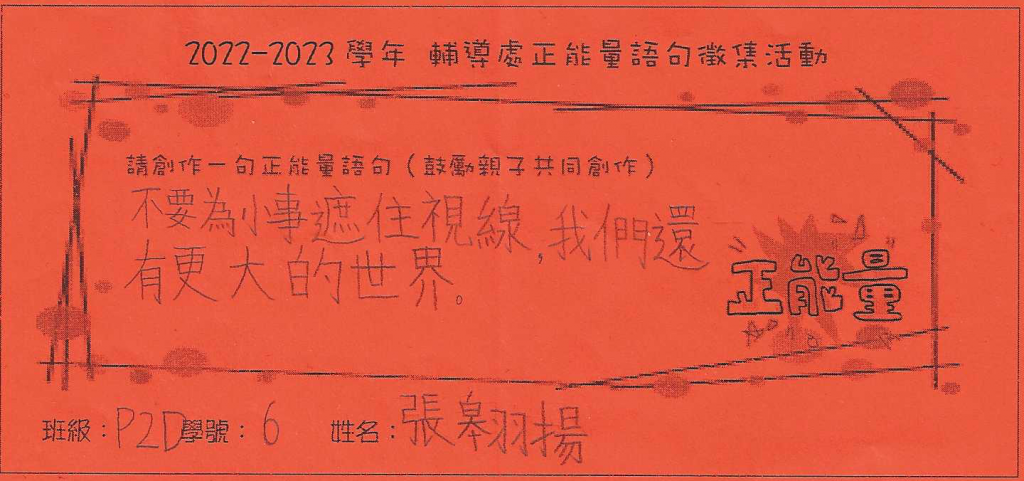 2022-2023學年 輔導處正能量語句徵集活動
請創作一句正能量語句（鼓勵親子共同創作）
不要為小事遮住視線,我們還
有更大的世界。
正能量
班級：P2D學號：6 姓名：張翱揚